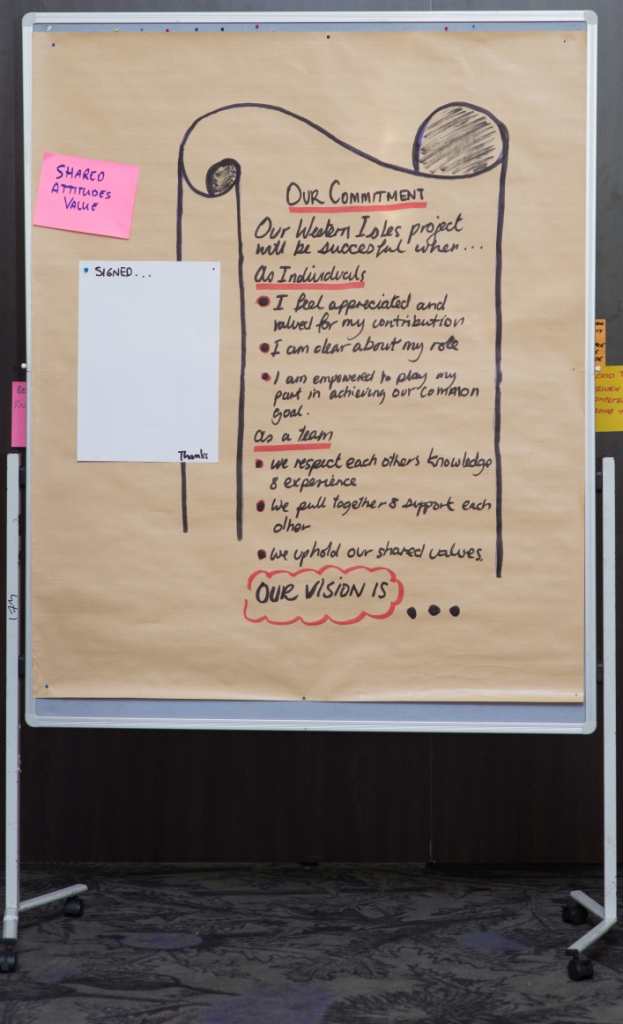 SHARED
ATTITUDES
VALUE
SIGNED...
Thanks
OUR COMMITMENT
Our Western Isles project
will be succesful when...
As Individuals
I feel appreciated and
valued for my contribution
I am clear about my role
I am empowered to play my
part in achieving our common
goal.
As a team
we respect each others knowledge
& experience
We pull together & support each
other
we uphold our shared values.
OUR VISION IS ...